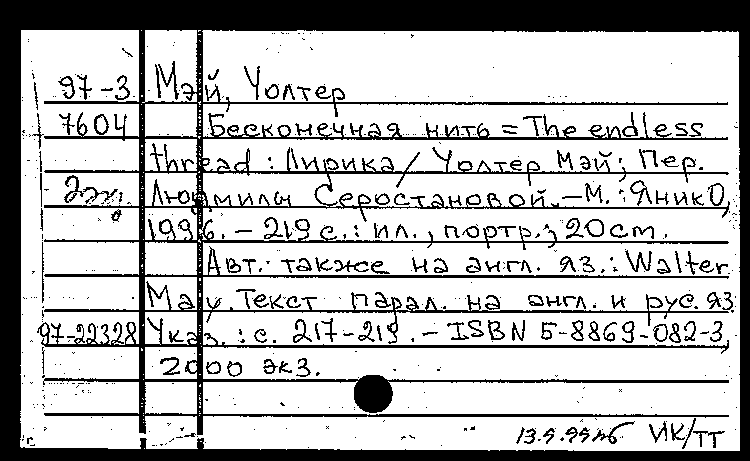 97-3 Мэй, Уолтер
7604 Бесконечная нить = The endless
thread : Лирика / Уолтер Мэй; Пер.
Людмилы Серостановой. – М. : ЯникО,
1996. – 219 с. : ил., портр.; 20 cm.
Авт. также на англ. яз. : Walter
May. Текст парал. на англ. и рус. яз
97-22328 Указ. : с. 217-219. – ISBN 5-8869-082-3,
2000 экз.
VK/TT